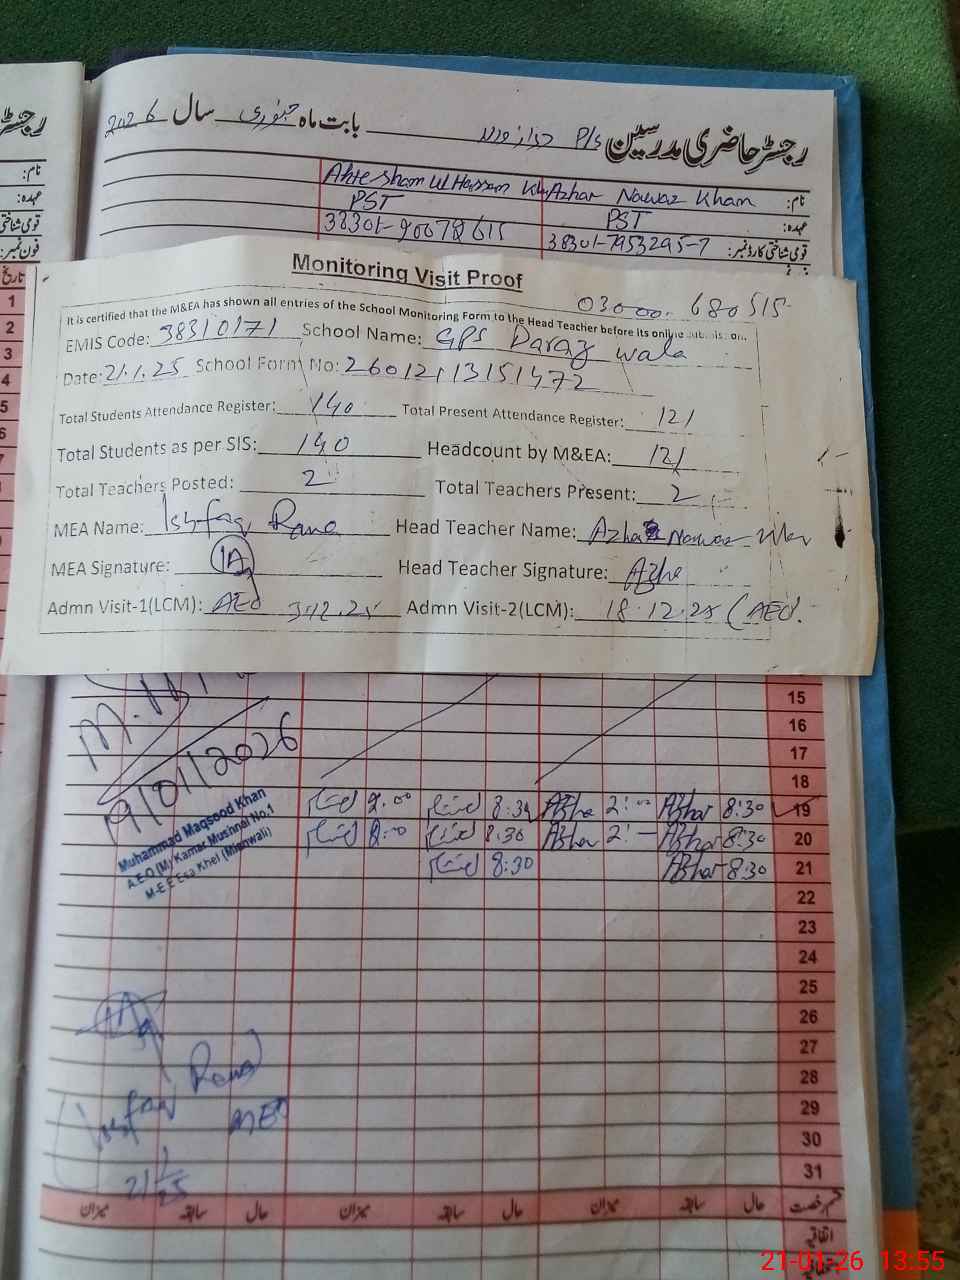 رجسٹر حاضری مدرسین P/s دراز والا بابت ماہ جنوری سال 2026
نام: Azhar Nawaz Khan Ahtesham Ul Hassan Kh
عہدہ: PST PST
قومی شناختی کارڈ نمبر: 38301-7953295-7 38301-90078615
Monitoring Visit Proof
03000 680515
It is certified that the M&EA has shown all entries of the School Monitoring Form to the Head Teacher before its online submission.
EMIS Code: 38310171 School Name: GPS Daraz wala
Date: 21.1.25 School Form No: 26012113151472
Total Students Attendance Register: 140 Total Present Attendance Register: 121
Total Students as per SIS: 140 Headcount by M&EA: 121
Total Teachers Posted: 2 Total Teachers Present: 2
MEA Name: Ishfaq Rana Head Teacher Name: Azhar Nawaz
MEA Signature: IA Head Teacher Signature: Azhar
Admn Visit-1(LCM): AEO 3.12.25 Admn Visit-2(LCM): 18.12.25 (AEO.
نام:
عہدہ:
قومی شناختی
فون نمبر:
تاریخ
1
2
3
4
5
6
15
16
17
18
19 Azhar 8:30 Azhar 2:00 8:30 2.00
20 Azhar 8:30 Azhar 2:- 8:30 2:00
21 Azhar 8:30 8:30
22
23
24
25
26
27
28
29
30
31
19/01/2026
Muhammad Maqsood Khan
A.E.O (M) Kamar Mushani No.1
M-E E Esa Khel (Mianwali)
Ishfaq Rana
MEA
21/1/25
قسم رخصت حال سابقہ میزان حال سابقہ میزان حال سابقہ میزان
اتفاقیہ
21-01-26 13:55